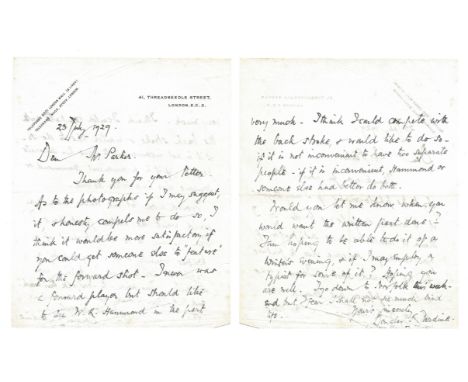 41, THREADNEEDLE STREET,
LONDON, E.C.2.
23 July 1929.
Dear Mr Parker.
Thank you for your letter.
As to the photographs if I may suggest
it, & honesty compels me to do so, I
think it would be more satisfactory if
you could get someone else to "feature"
for the forward shot - I never was
a forward player but should like
to see W. R. Hammond in the part
very much. I think I could compete with
the back stroke, & would like to do so -
if it is not inconvenient to have two separate
people - if it is inconvenient, Hammond or
someone else had better do both.
Would you let me know when you
would want the written part done?
I am hoping to be able to do it of a
evening, & if I may employ a
typist for some of it? Hoping you
are well. I go down to Norfolk this week-
end but I fear I shall not see much bird
life.
Yours sincerely